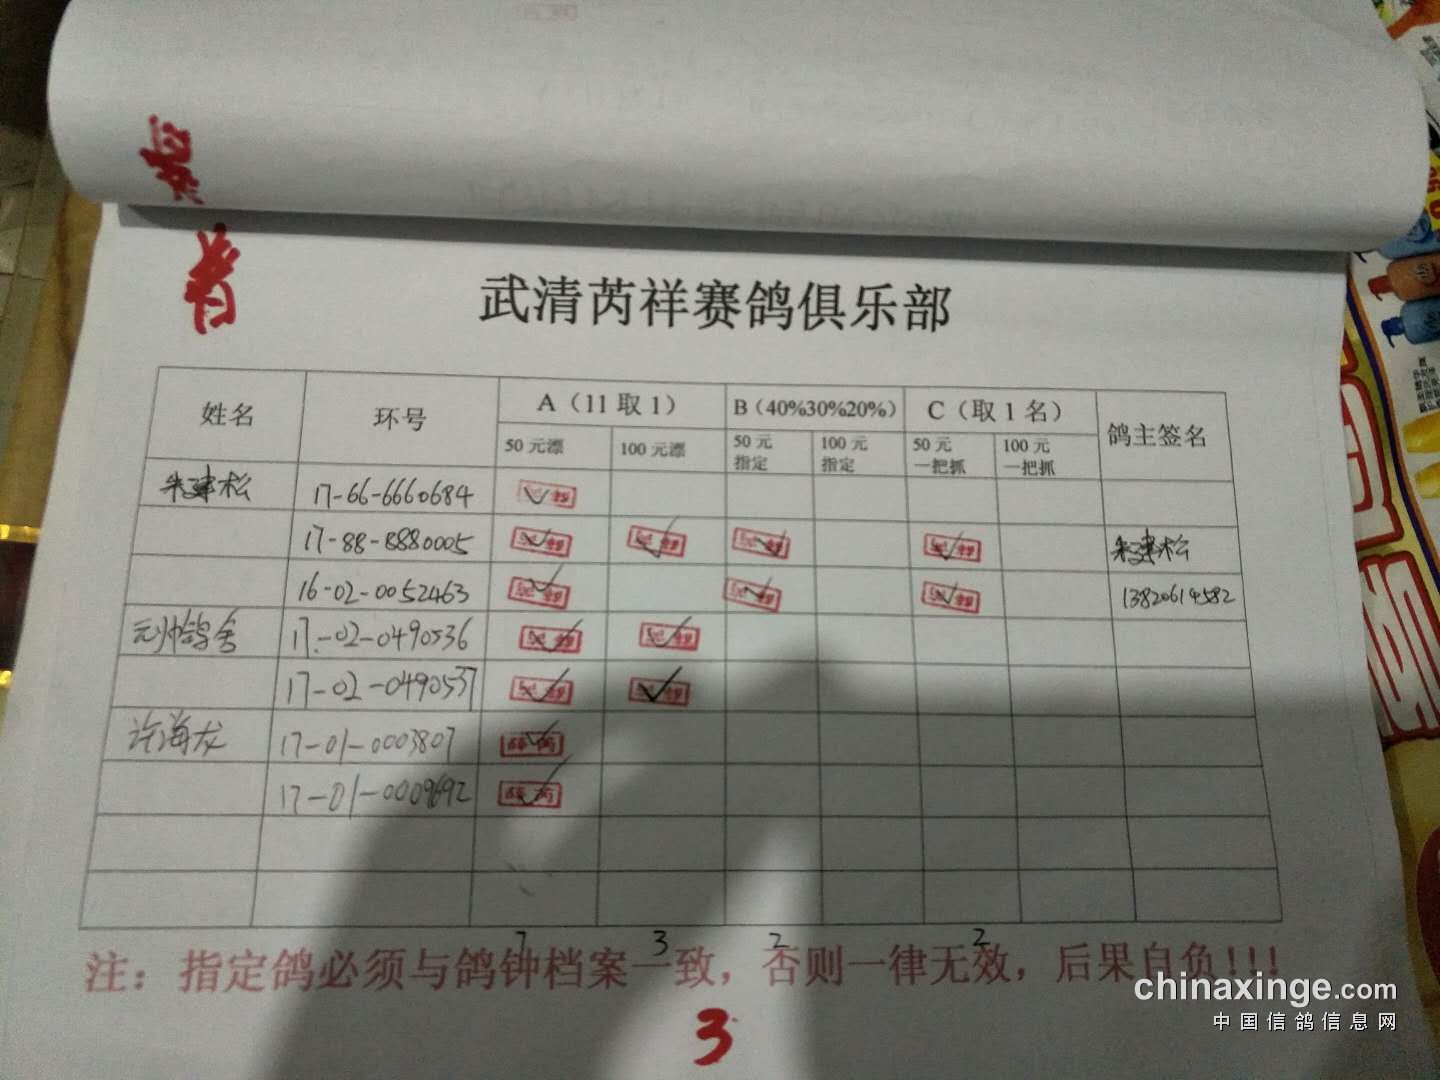 武清芮祥赛鸽俱乐部
姓名 环号 A（11 取 1） B（40%30%20%） C（取 1 名） 鸽主签名
50 元漂 100 元漂 50 元指定 100 元指定 50 元一把抓 100 元一把抓
朱建松 17-66-6660684 ✓
17-88-8880005 ✓ ✓ ✓ ✓ 朱建松
16-02-0052463 ✓ ✓ ✓ 13820614582
元帅鸽舍 17-02-0490536 ✓ ✓
17-02-0490537 ✓ ✓
许海龙 17-01-0003807 ✓
17-01-0009692 ✓
7 3 2 2
注：指定鸽必须与鸽钟档案一致，否则一律无效，后果自负!!!
3
chinaxinge.com
中国信鸽信息网